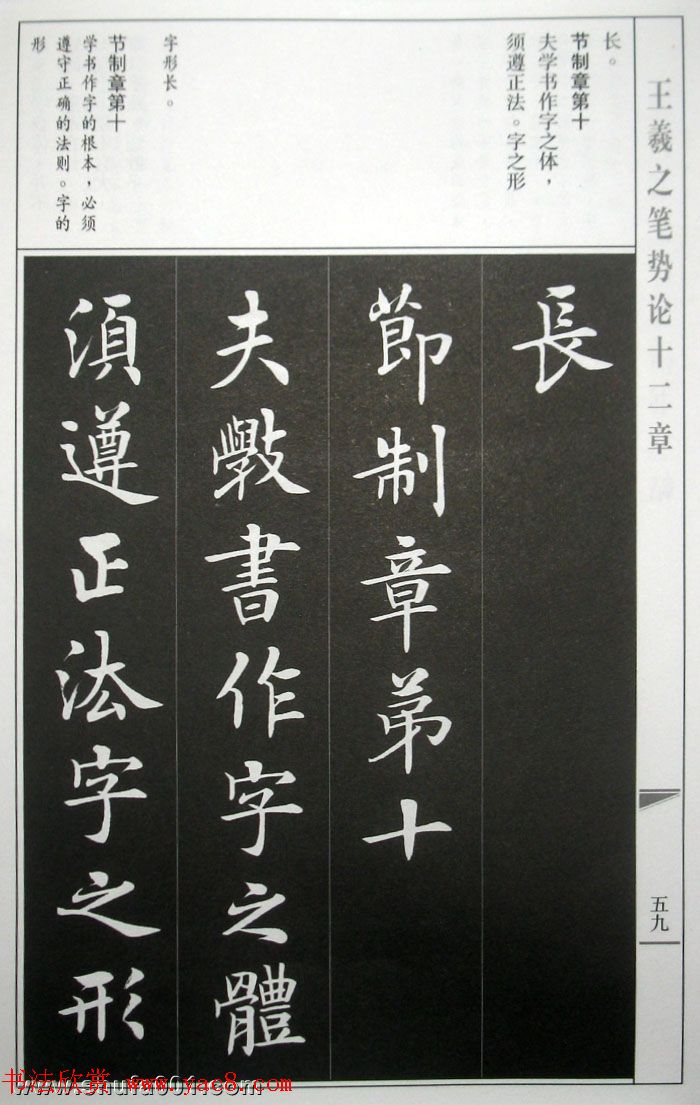 王羲之笔势论十二章
五九
长。
节制章第十
夫学书作字之体，
须遵正法。字之形
字形长。
节制章第十
学书作字的根本，必须
遵守正确的法则。字的
形
長
節制章苐十
夫斆書作字之體
湏遵正法字之形
书法欣赏 www.yac8.com